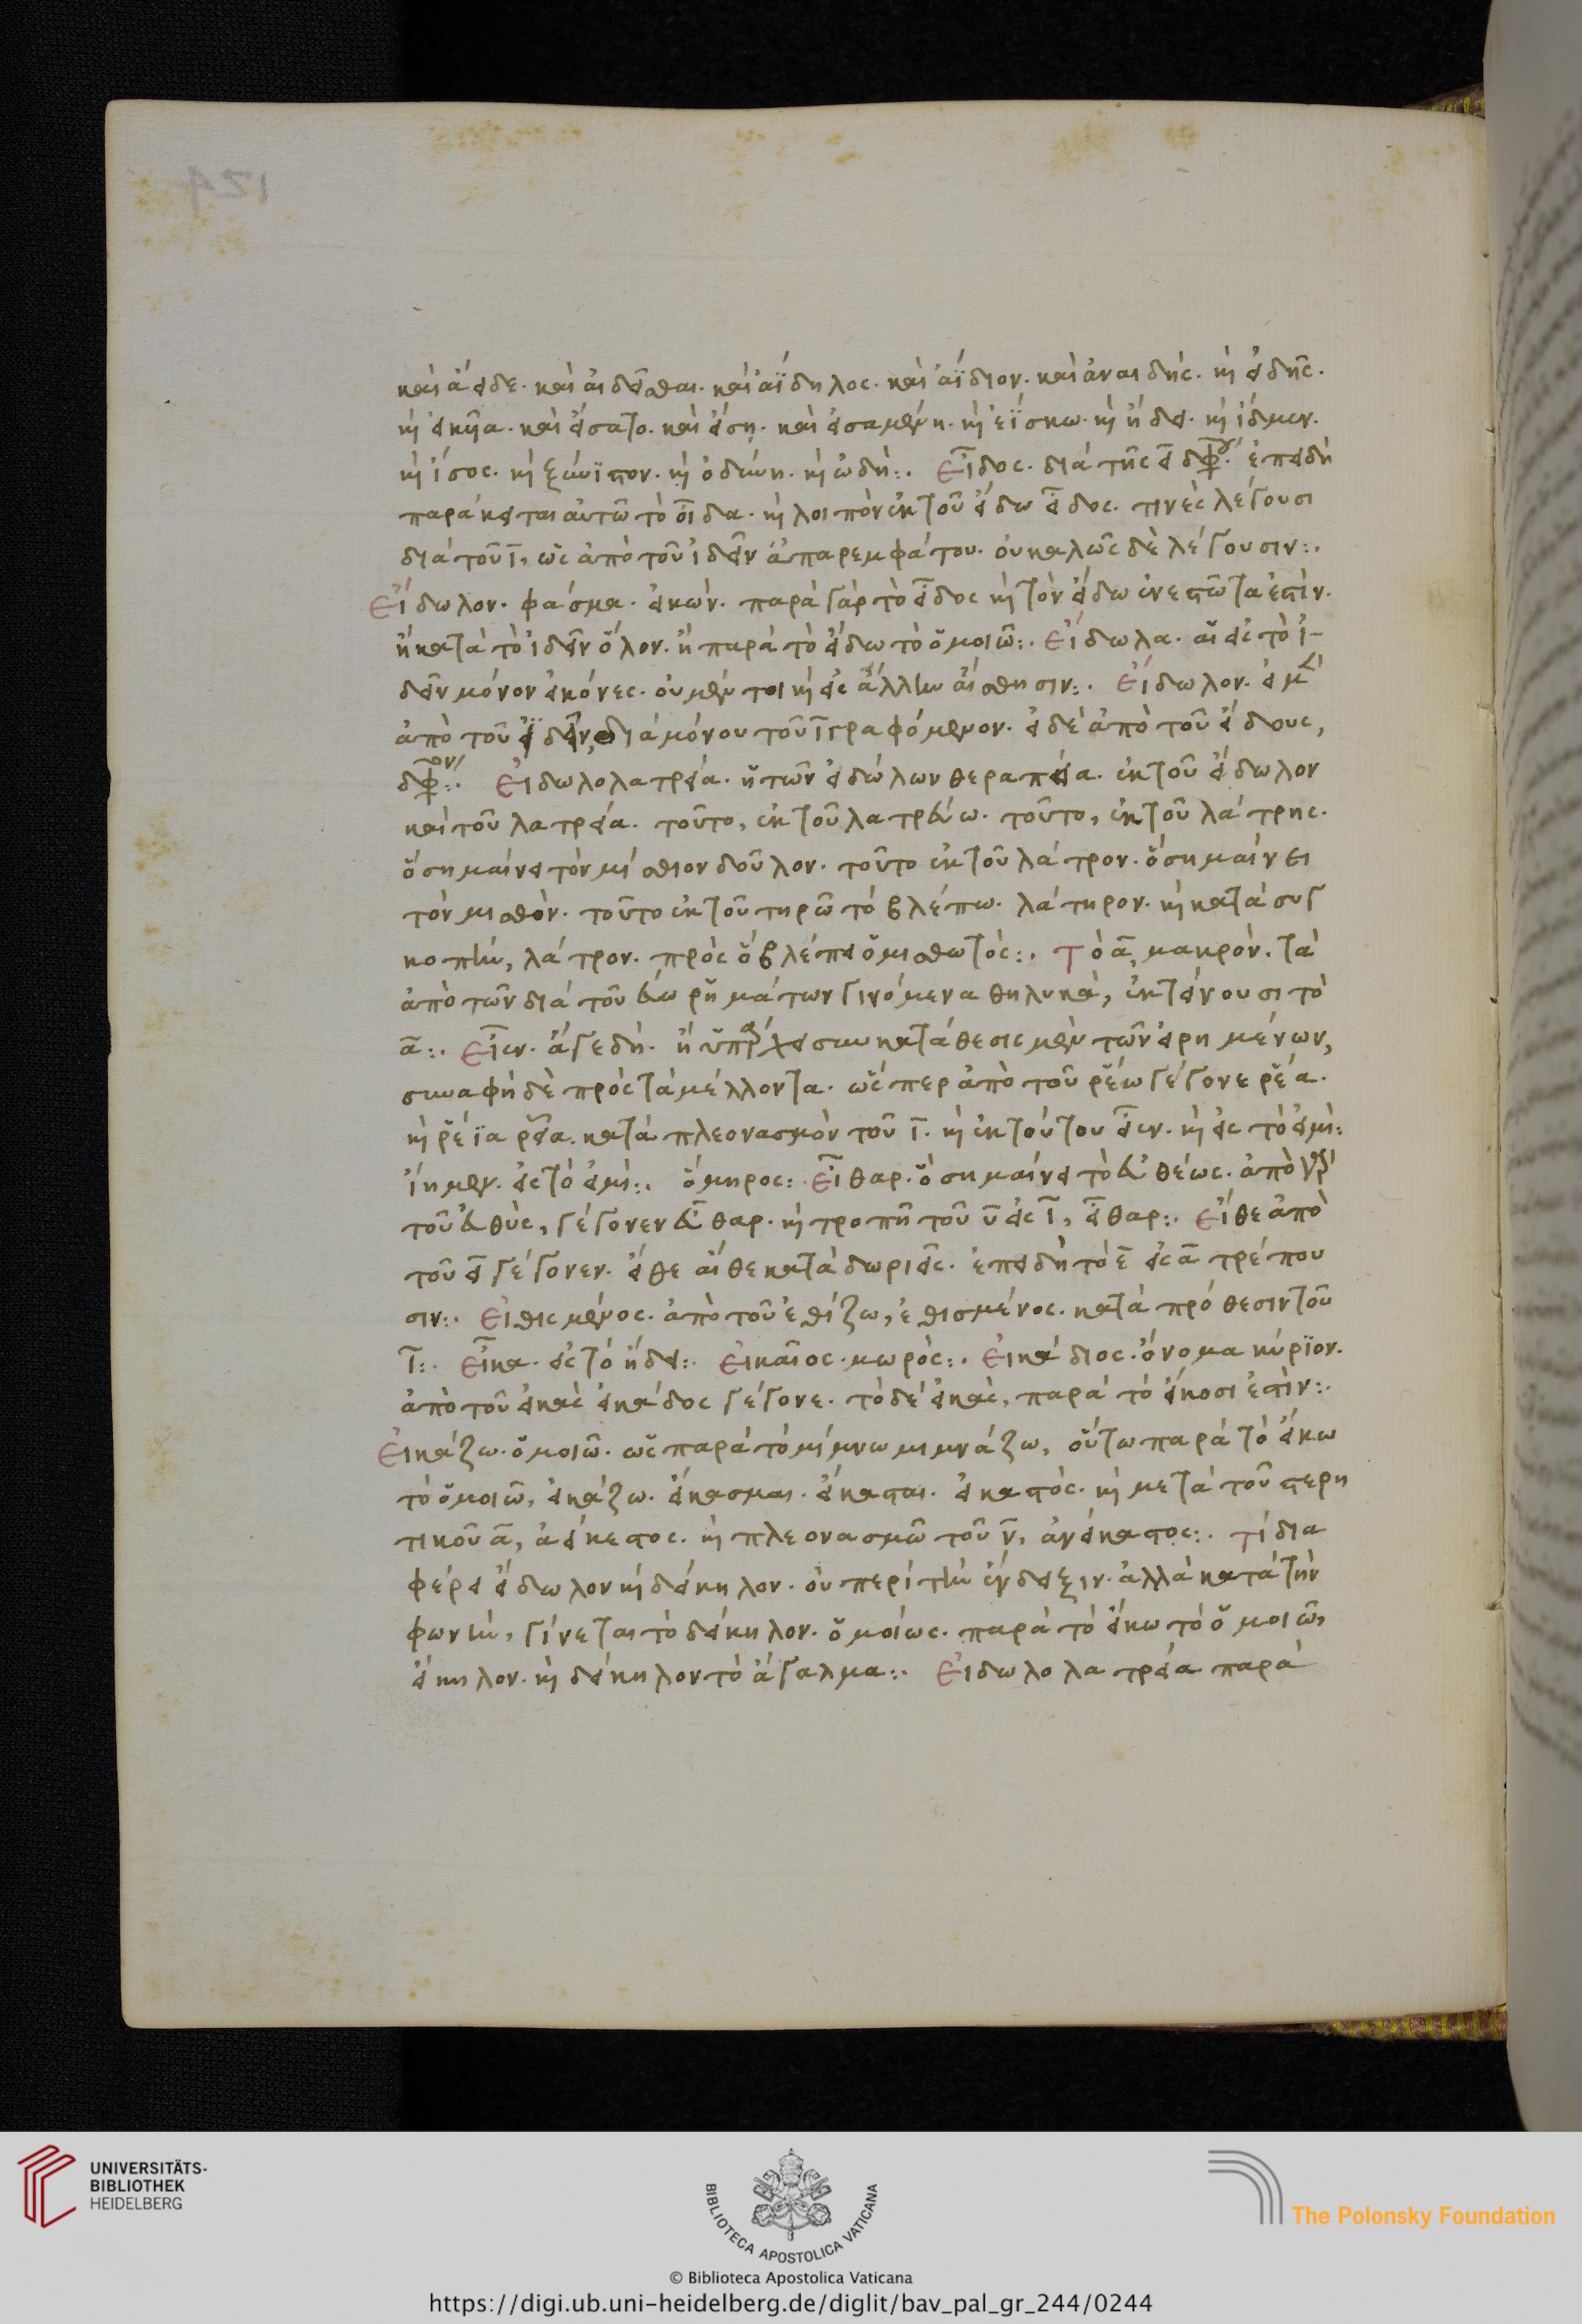 καὶ ἄειδε. καὶ αἰδεῖσθαι. καὶ ἀΐδηλος. καὶ ἀΐδιον. καὶ ἀναιδής. καὶ εἰδῆς.
καὶ εἰκυῖα. καὶ εἴσατο. καὶ εἴση. καὶ εἰσαμένη. καὶ ἐΐσκω. καὶ ἤδει. καὶ ἴδμεν.
καὶ ἴσος. καὶ ξύνιπον. καὶ ὀδύνη. καὶ ὠδή:. Εἶδος. διὰ τῆς ει διφθόγγου. ἐπειδὴ
παράκειται αὐτῶ τὸ οἶδα. καὶ λοιπὸν ἐκ τοῦ εἴδω εἶδος. τινὲς λέγουσι
διὰ τοῦ ι, ὡς ἀπὸ τοῦ ἰδεῖν ἀπαρεμφάτου. οὐ καλῶς δὲ λέγουσιν:.
Εἴδωλον. φάσμα. εἰκών. παρὰ γὰρ τὸ εἶδος καὶ τὸν εἴδω ἐνεστῶτα ἐστίν.
ἢ κατὰ τὸ ἰδεῖν ὅλον. ἢ παρὰ τὸ εἴδω τὸ ὁμοιῶ:. Εἴδωλα. αἱ εἰς τὸ ἰ-
δεῖν μόνον εἰκόνες. οὐ μέν τοι καὶ εἰς ἄλλην αἴσθησιν:. Εἴδωλον. εἰ μὲν
ἀπὸ τοῦ ἰδεῖν, διὰ μόνου τοῦ ι γραφόμενον. εἰ δὲ ἀπὸ τοῦ εἴδους,
δίφθογγον:. Εἰδωλολατρεία. ἡ τῶν εἰδώλων θεραπεία. ἐκ τοῦ εἴδωλον
καὶ τοῦ λατρεία. τοῦτο, ἐκ τοῦ λατρεύω. τοῦτο, ἐκ τοῦ λάτρης.
ὃ σημαίνει τὸν μίσθιον δοῦλον. τοῦτο ἐκ τοῦ λάτρον. ὃ σημαίνει
τὸν μισθόν. τοῦτο ἐκ τοῦ τηρῶ τὸ βλέπω. λάτηρον. καὶ κατὰ συγ
κοπὴν, λάτρον. πρὸς ὃ βλέπει ὁ μισθωτός:. Τὸ α, μακρόν. τὰ
ἀπὸ τῶν διὰ τοῦ εύω ῥημάτων γινόμενα θηλυκὰ, ἐκτείνουσι τὸ
α:. Εἶεν. ἄγε δή. ἢ ὑπάρχει συγκατάθεσις μὲν τῶν εἰρημένων,
συναφὴ δὲ πρὸς τὰ μέλλοντα. ὥσπερ ἀπὸ τοῦ ῥέω γέγονε ῥέα.
καὶ ῥέϊα ῥεῖα. κατὰ πλεονασμὸν τοῦ ι. καὶ ἐκ τούτου εἶεν. καὶ εἰς τὸ εἰμί:
ἴημεν. εἰς τὸ εἰμί:. ὅμηρος: Εἶθαρ. ὃ σημαίνει τὸ εὐθέως. ἀπὸ γὰρ
τοῦ εὐθὺς, γέγονεν εὖθαρ. καὶ τροπῆ τοῦ υ εἰς ι, εἶθαρ:. Εἴθε ἀπὸ
τοῦ ει γέγονεν. εἴθε αἴθε κατὰ δωριεῖς. ἐπειδὴ τὸ ε εἰς α τρέπου
σιν:. Εἰθισμένος. ἀπὸ τοῦ ἐθίζω, ἐθισμένος. κατὰ πρόθεσιν τοῦ
ι:. Εἶκα. εἰς τὸ ἤδει:. Εἰκαῖος. μωρός:. Εἰκάδιος. ὄνομα κύριον.
ἀπὸ τοῦ εἰκὰς εἰκάδος γέγονε. τὸ δὲ εἰκὰς, παρὰ τὸ εἴκοσι ἐστίν:.
Εἰκάζω. ὁμοιῶ. ὡς παρὰ τὸ μίμνω μιμνάζω, οὕτω παρὰ τὸ εἴκω
τὸ ὁμοιῶ, εἰκάζω. εἴκασμαι. εἴκασται. εἰκαστός. καὶ μετὰ τοῦ στερη
τικοῦ α, ἀείκεστος. καὶ πλεονασμῶ τοῦ ν, ἀνείκαστος:. Τί δια
φέρει εἴδωλον καὶ δείκηλον. οὐ περὶ τὴν ἔνδειξιν. ἀλλὰ κατὰ τὴν
φωνήν, γίνεται τὸ δείκηλον. ὁμοίως. παρὰ τὸ εἴκω τὸ ὁμοιῶ,
εἴκηλον. καὶ δείκηλον τὸ ἄγαλμα:. Εἰδωλολατρεία παρὰ
UNIVERSITÄTS-
BIBLIOTHEK
HEIDELBERG
BIBLIOTECA APOSTOLICA VATICANA
The Polonsky Foundation
© Biblioteca Apostolica Vaticana
https://digi.ub.uni-heidelberg.de/diglit/bav_pal_gr_244/0244